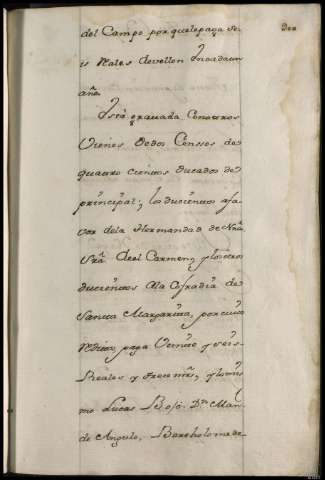 del Campo por quele paga se-
is Reales de vellon En cada un
año.
Está gravada Con otros
Vienes de dos Censsos de
quatro cientos ducados de
principal, los duscientos a fa-
vor dela Hermandad de Nrâ
Srâ. deel Carmen, y los otros
duscientos ala Cofradia de
Santa Margarita, por cuios
Reditos, paga Veinte y seis
Reales y trece mrs, y lo mis-
mo Lucas Dn Ma
de Angulo, Bartholome de